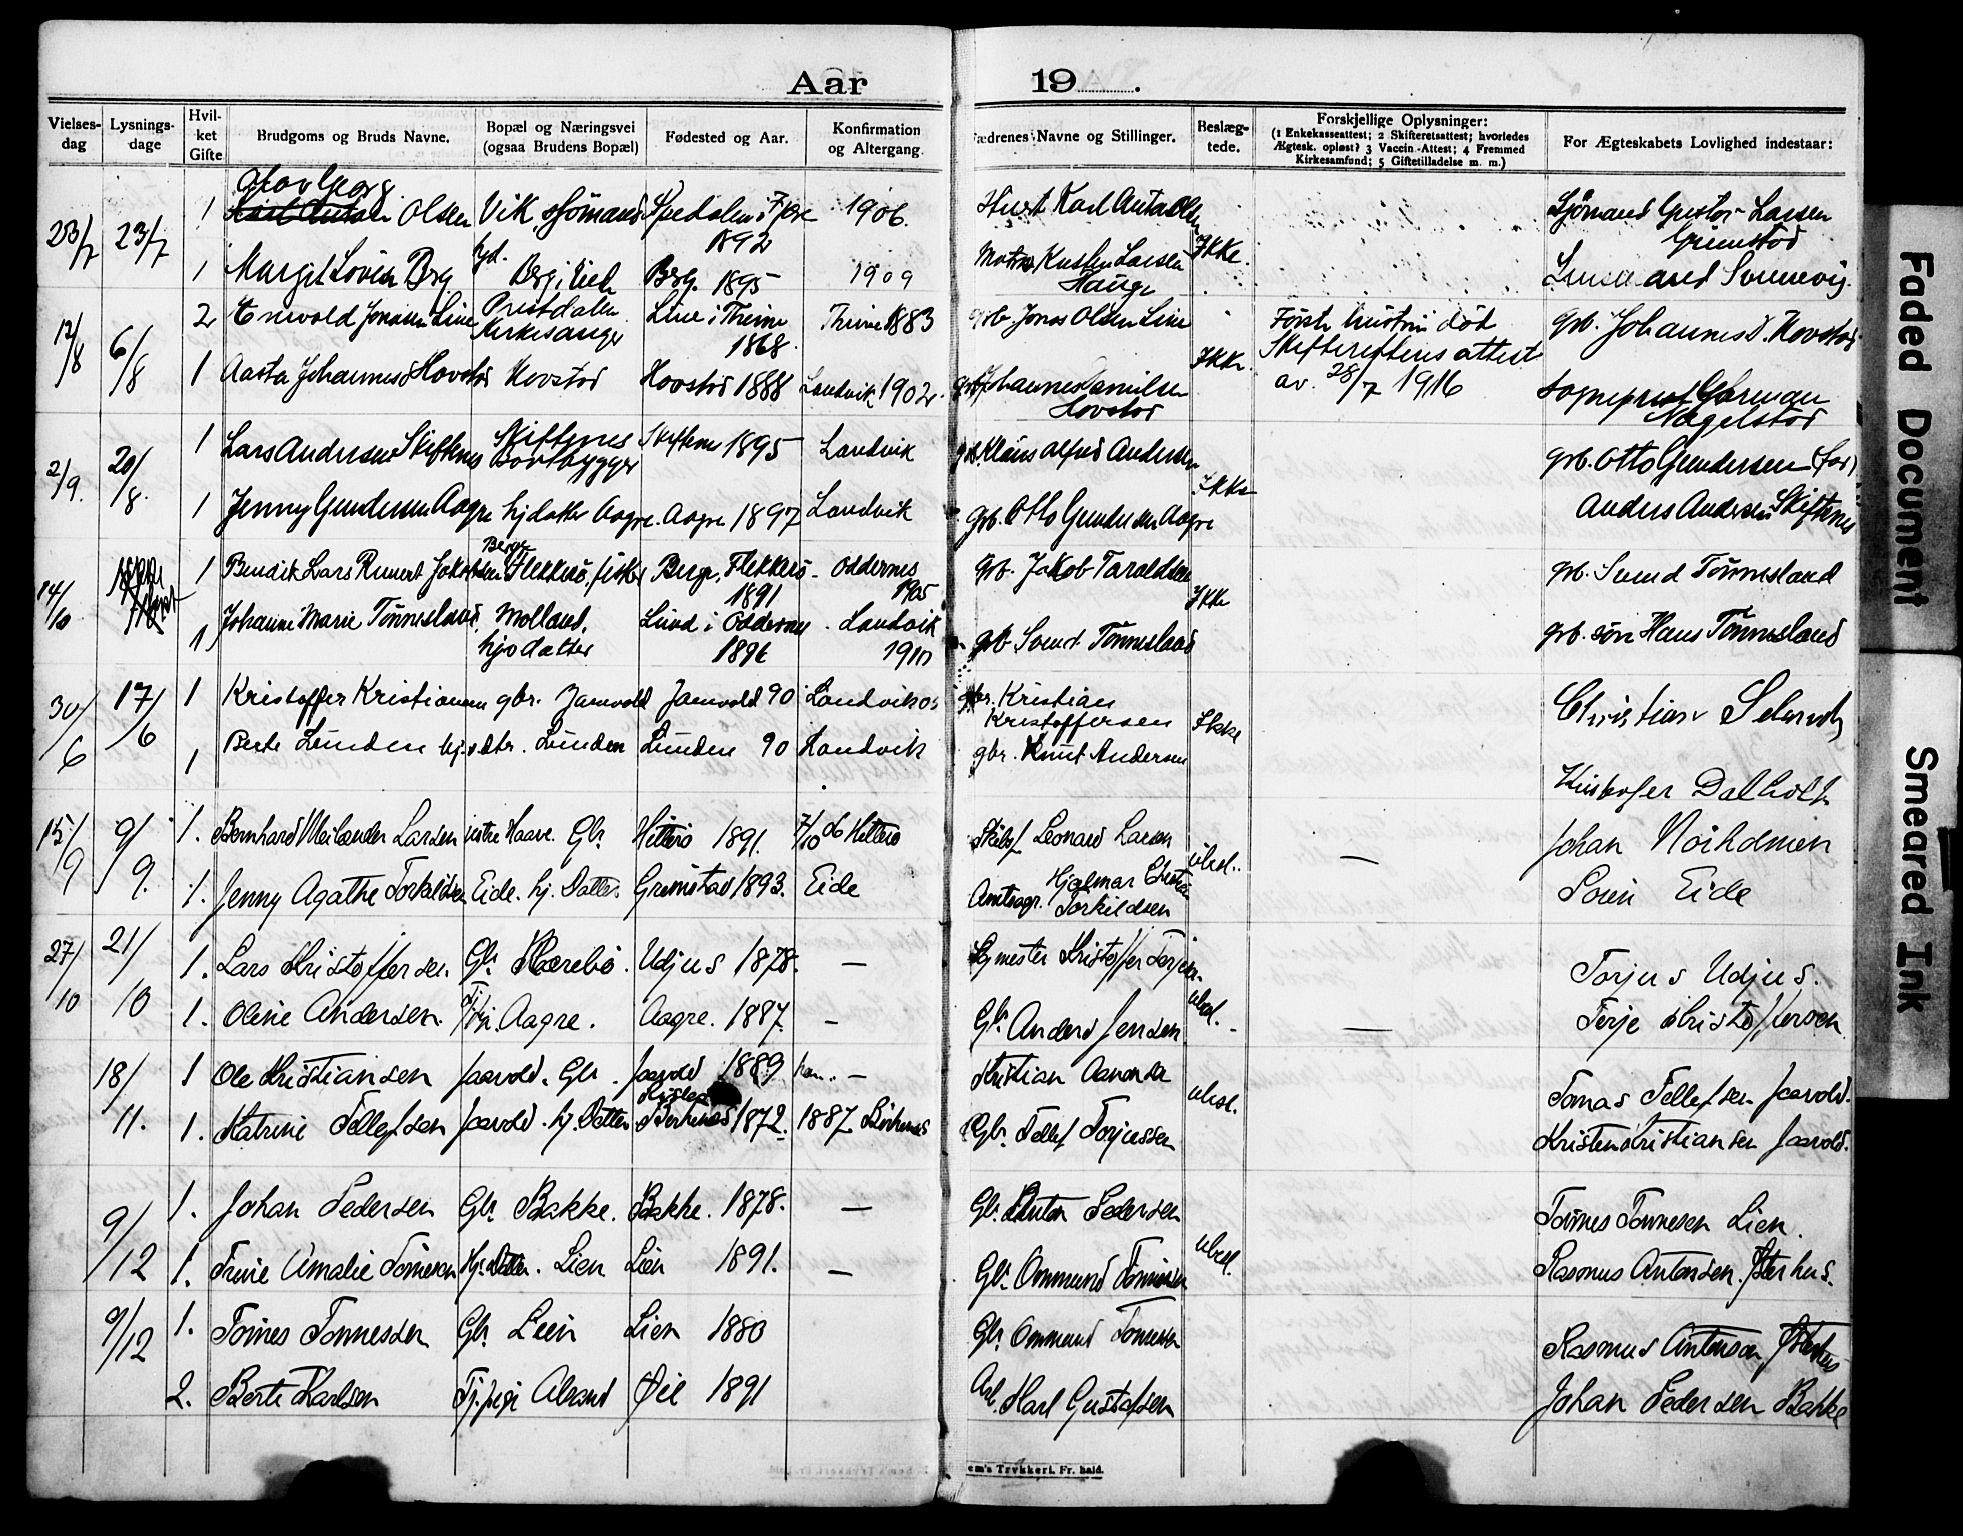 Aar 19 .
Vielses-dag
Lysnings-dage
Hvil-ket Gifte
Brudgoms og Bruds Navne.
Bopæl og Næringsvei (ogsaa Brudens Bopæl)
Fødested og Aar.
Konfirmation og Altergang
Fædrenes Navne og Stillinger.
Beslæg-tede.
Forskjellige Oplysninger:
(1 Enkekasseattest; 2 Skifteretsattest; hvorledes Ægtesk. opløst? 3 Vaccin.-Attest; 4 Fremmed Kirkesamfund; 5 Giftetilladelse m. m.)
For Ægteskabets Lovlighed indestaar:
23/7 23/7 1 Georg Olsen Vik, sjömand 1892 1906. Karl Anta Olsen Ikke. Sjömand Gustav Larsen Grimstad
1 Margit Lovise Berg Berg i Eide Berg. 1895 1909 Larsen Hauge
12/8 6/8 2 Jonasen Line Line i Thime 1868 Thime 1883 grb. Jonas Olsen Line Ikke. Første hustru död Skifterettens attest av 28/7 1916 grb. Johannes D. Hovstad
1 Aasta Johannesd Hovstad Hovstad Hovstad 1888 Landvik 1902 grb Johannes Danielsen Hovstad sogneprest Gorman Nagelstad
2/9. 20/8. 1 Lars Andersen Skiftenes Skiftenes Skiftenes 1895 Landvik grb. Klaus Alfred Andersen Ikke grb. Otto Gundersen (far)
1 Jenny Gundersen Aagre hj datter Aagre. Aagre 1897 Landvik grb. Otto Gundersen Aagre Anders Andersen Skiftenes
14/10 1 Bendik Lars Jakobsen Berge Flekkerö, fisker Berge, Flekkerö 1891 Oddernes 1905 grb. Jakob Taraldsen Ikke grb. Svend Tönnesland
1 Johanne Marie Tönnesland Molland, hj datter Lund i Oddernes 1896 Landvik 1910 grb Svend Tönnesland grb. sön Hans Tönnesland
30/6 17/6 1 Kristoffer Kristiansen gbr. Jaavold Jaavold 90 Landvik gbr. Kristian Kristoffersen Ikke Christian
1 Berte Lunden hjdtr. Lunden Lunden 90 Landvik gbr. Knut Andersen Kristofer Dalholt
15/9 9/9. 1. Bernhard Larsen Gbr Hitterö 1891. 7/10 06 Hitterö Leonard Larsen ubesl. — Johan Noiholmen
1. Jenny Agathe Torkildsen Eide. hj. Datter Grimstad 1893. Eide Amtsagr. Hjalmar Torkildsen Soren Eide
27/10 21/10 1. Lars Kristoffersen. Gbr. Udjus 1878. — Kristoffer ubesl. — Torjus Udjus.
1. Oline Andersen. Tj. pi. Aagre. Aagre. 1887. — Gbr. Anders Jensen Terje Kristoffersen
18/11. 1 Ole Kristiansen Jaavold. Gbr. Jaavold 1889 — Kristian ubesl. Tomas Tellefsen Jaavold.
1. Katrine Tellefsen Jaavold. hj. Datter Birkenes 1872. 1887 Birkenes Gbr. Tellef Torjussen Kristen Kristiansen Jaavold.
9/12 1. Johan Pedersen Gbr. Bakke. Bakke. 1878. — Gbr. Anton Pedersen ubesl. Tönnes Tönnesen Lien.
1. Trine Amalie Tönnesen Hj. datter. Lien Lien 1891. — Gbr. Ommund Tönnesen Rasmus Antonsen.
9/12 1. Tönnes Tönnessen Gbr. Lien Lien 1880 Gbr. Ommund Tönnessen Rasmus Antonsen
2. Berte Karlsen Tj. pige 1891 Arb. Karl Gustafsen Johan Pedersen Bakke
em's Trykkeri. Fr. hald.
Faded Document
Smeared Ink